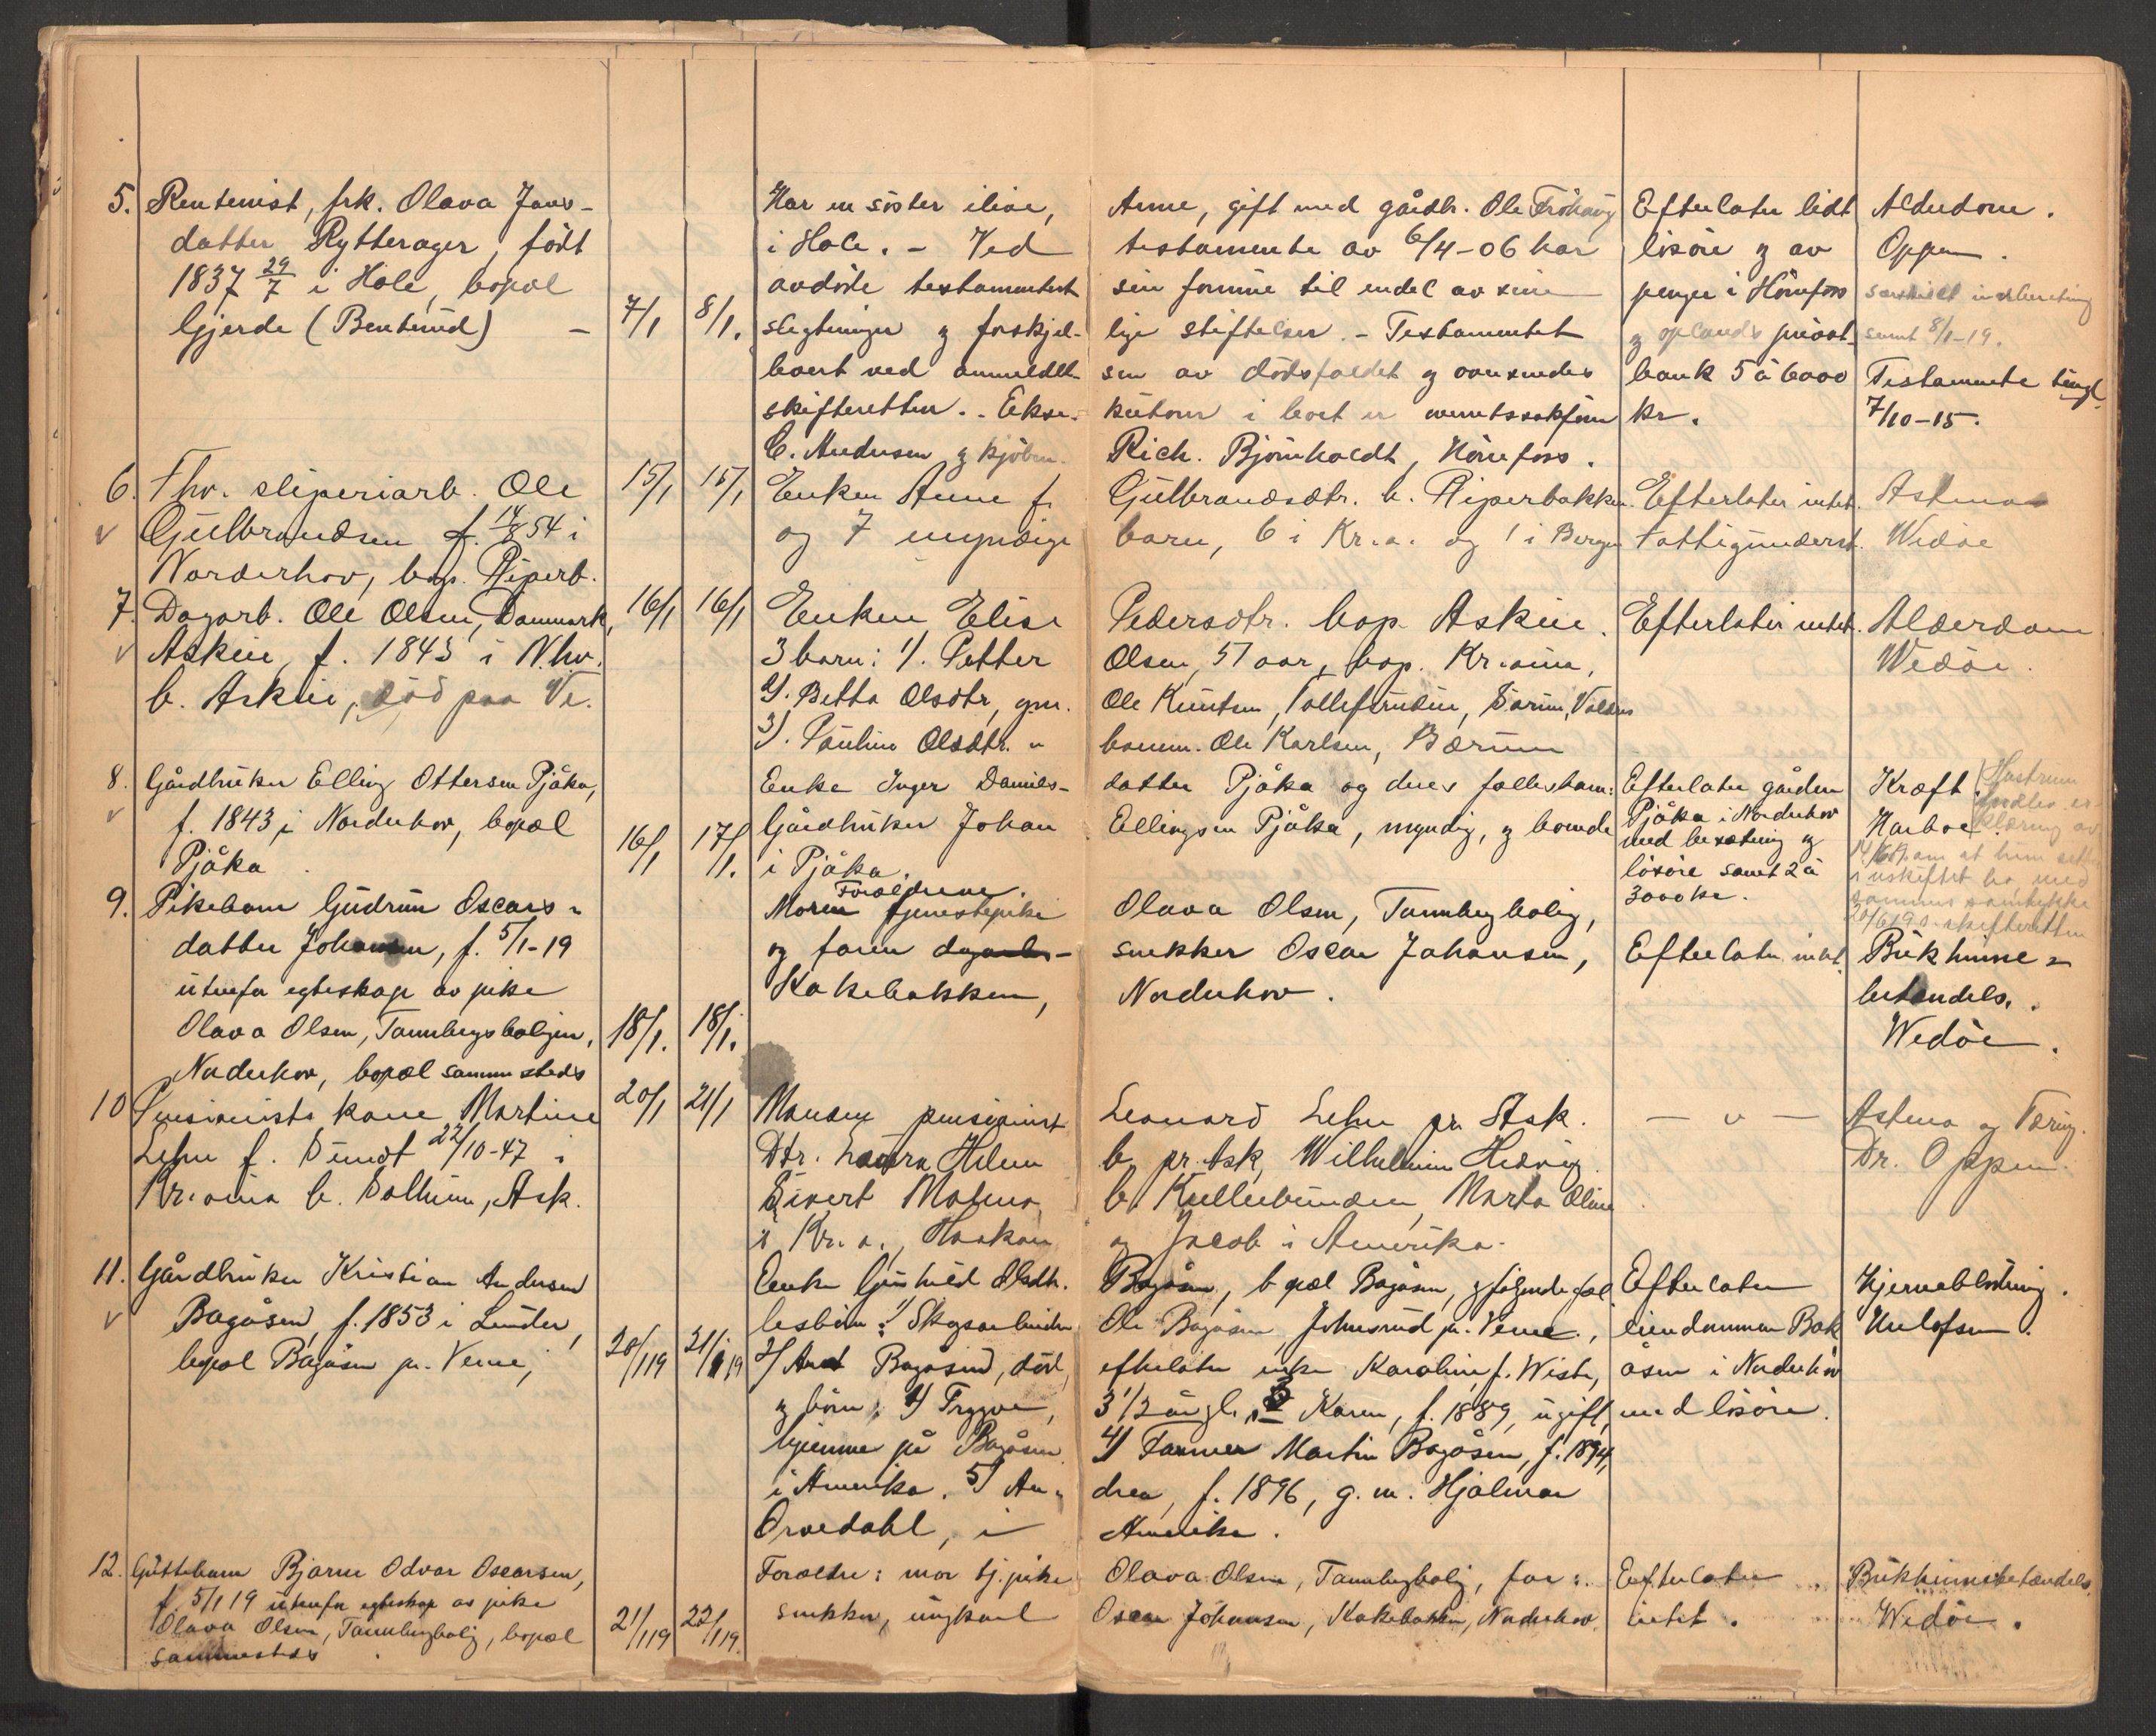 5. Rentenist, frk. Olava Jans-
datter Rytterager, född
1837 29/7 i Hole, bopæl
Gjerde (Bentsrud) –
7/1 8/1.
Har en søster ilive, Anne, gift med gårdbr. Ole Fröhaug
i Hole. – Ved testamente av 6/4-06 har
avdöde testamentert sin formue til endel av sine
slegtninger og forskjel- lige stiftelser. – Testamentet
blev ved anmeldel- sen av dödsfaldet og oversendes
skifteretten. – Ekse- kutorer i boet er overretssakförer
C. Andersen og kjöbm. Rich. Björnholdt, Hönefoss.
Efterlater lidt
lösöre og av
penger i Hönefoss
og oplands privat-
bank 5 à 6000
kr.
Alderdom.
Oppen.
særskilt indberetning
sendt 8/1-19.
Testamente tingl.
7/10-15.
6. Fhv. sliperiarb. Ole
v Gulbrandsen f. 14/8 54 i
Norderhov, bop. Piperb.
15/1 15/1
Enken Anne f. Gulbrandsdtr. b. Piperbakken.
og 7 myndige barn, 6 i Kr.a. og 1 i Bergen
Efterlater intet.
Fattigunderst.
Astma
Wedöe
7. Dagarb. Ole Olsen, Danmark,
v Askeie, f. 1843 i N.hov.
b. Askeie, död paa Ve.
16/1 16/1
Enken Elise Pedersdtr. bop. Askeie.
3 barn: 1/. Petter Olsen, 51 aar, bop. Kr.ania,
2/. Betta Olsdtr, gm. Ole Knutsen, Tollefsrudeie, Sörum, Valdres
3/. Pauline Olsdtr. " banem. Ole Karlsen, Bærum
Efterlater intet.
Alderdom
Wedöe.
8. Gårdbruker Elling Ottersen Pjåka,
v f. 1843 i Norderhov, bopæl
Pjåka
16/1 17/1.
Enke Inger Daniels- datter Pjåka og deres fællesbarn:
Gårdbruker Johan Ellingsen Pjåka, myndig, og boende
i Pjåka.
Efterlater gården
Pjåka i Norderhov
med besætning og
lösöre samt 2 à
3000 kr.
Kræft.
Harboe.
Hustruen
erklæring av
14/6 19 om at hun sitter
i uskiftet bo med
sönnens samtykke
20/6 19 s. skifteretten
9. Pikebarn Gudrun Oscars-
datter Johansen, f. 5/1-19
utenfor egteskap av pike
Olava Olsen, Tannbergboligen,
Norderhov, bopæl sammesteds
18/1. 18/1.
Forældrene.
Moren tjenestepike Olava Olsen, Tannbergbolig,
og faren dagarb- snekker Oscar Johansen,
Kakebakken, Norderhov.
Efterlater intet.
Bukhinne-
betændels.
Wedöe.
10 Pensionists kone Martine
Lehn f. Sundt 22/10-47 i
Kr.ania b. Solheim, Ask.
20/1 21/1
Manden pensionist Leonard Lehn pr. Ask.
Dtr. Laura Helene b. pr. Ask, Wilhelmine Hedvig
Sivert Mathea b. Kullerbunden, Marta Oline
i Kr.a., Haakon og Jacob i Amerika.
— v —
Astma og Tæring.
Dr. Oppen.
11. Gårdbruker Kristian Andersen
v Bagåsen, f. 1853 i Lunder,
bopæl Bagåsen pr. Veme,
20/1 19 21/1 19
Enke Gunhild Olsdtr. Bagåsen, bopæl Bagåsen, og fölgende fæl-
lesbörn: 1/ Skogsarbeider Ole Bagåsen, Johnsrud pr. Veme.,
2/ Anet Bagåsen, död, efterlater enke Karoline f. Wiste,
og börn: 1/ Trygve, 3 1/2 år gl. 3 Karen, f. 1889, ugift,
hjemme på Bagåsen 4/ Farmer Martin Bagåsen, f. 1894,
i Amerika. 5/ An- drea, f. 1896, g. m. Hjalmar
Orvedahl, i Amerika.
Efterlater
eiendommen Bak-
åsen i Norderhov
med lösöre.
Hjerneblödning.
Unlofsen.
12. Guttebarn Bjarne Odvar Oscarsen,
f. 5/1 19 utenfor egteskap av pike
Olava Olsen, Tannbergbolig, bopæl
sammesteds
21/1 19 22/1 19.
Forældre: mor tj.pike Olava Olsen, Tannbergbolig, far:
snekker, ungkarl Oscar Johansen, Kakebakken, Norderhov.
Efterlater
intet.
Bukhinnebetændels.
Wedöe.